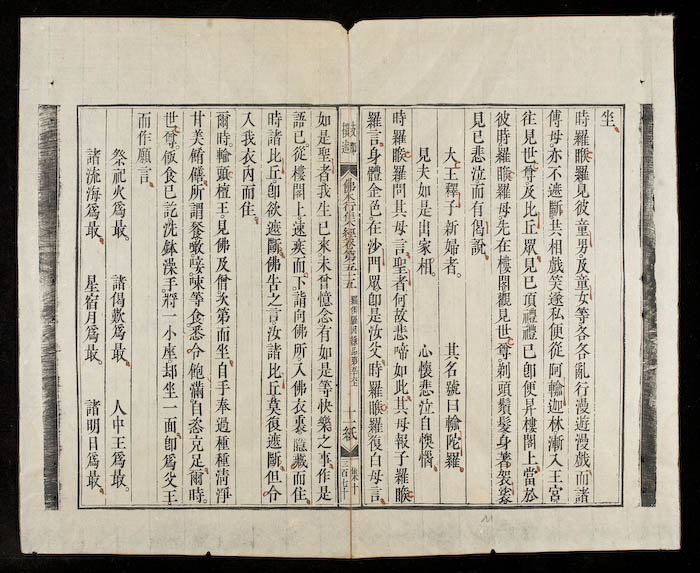 坐
時羅睺羅見彼童男及童女等各各亂行漫遊漫戲而諸
傅母亦不遮斷其相戲笑遂私便從阿輸迦林漸入王宮
往見世尊及比丘眾見已頂禮禮已卽便昇樓閣上當於
彼時羅睺羅母先在樓閣觀見世尊剃頭鬚髮身著袈裟
見已悲泣而有偈說
大王釋子新婦者 其名號曰輸陀羅
見夫如是出家相 心懷悲泣自懊惱
時羅睺羅問其母言聖者何故悲啼如此其母報子羅睺
羅言身體金色在沙門眾卽是汝父時羅睺羅復白母言
佛本行集經卷第五十五 羅睺羅因緣品第五十六 十一紙
如是聖者我生已來未曾憶念有如是等快樂之事作是
語已從樓閣上速疾而下詣向佛所入佛衣裏隱藏而住
時諸比丘卽欲遮斷佛告之言汝諸比丘莫復遮斷但令
入我衣內而住
爾時輸頭檀王見佛及僧次第而坐自手奉過種種淸淨
甘美餚饍所謂餐噉唼㗖等食悉令飽滿自恣充足爾時
世尊飯食已訖洗鉢澡手將一小座却坐一面卽爲父王
而作願言
祭祀火爲最 諸偈數爲最 人中王爲最
諸流海爲最 星宿月爲最 諸明日爲最